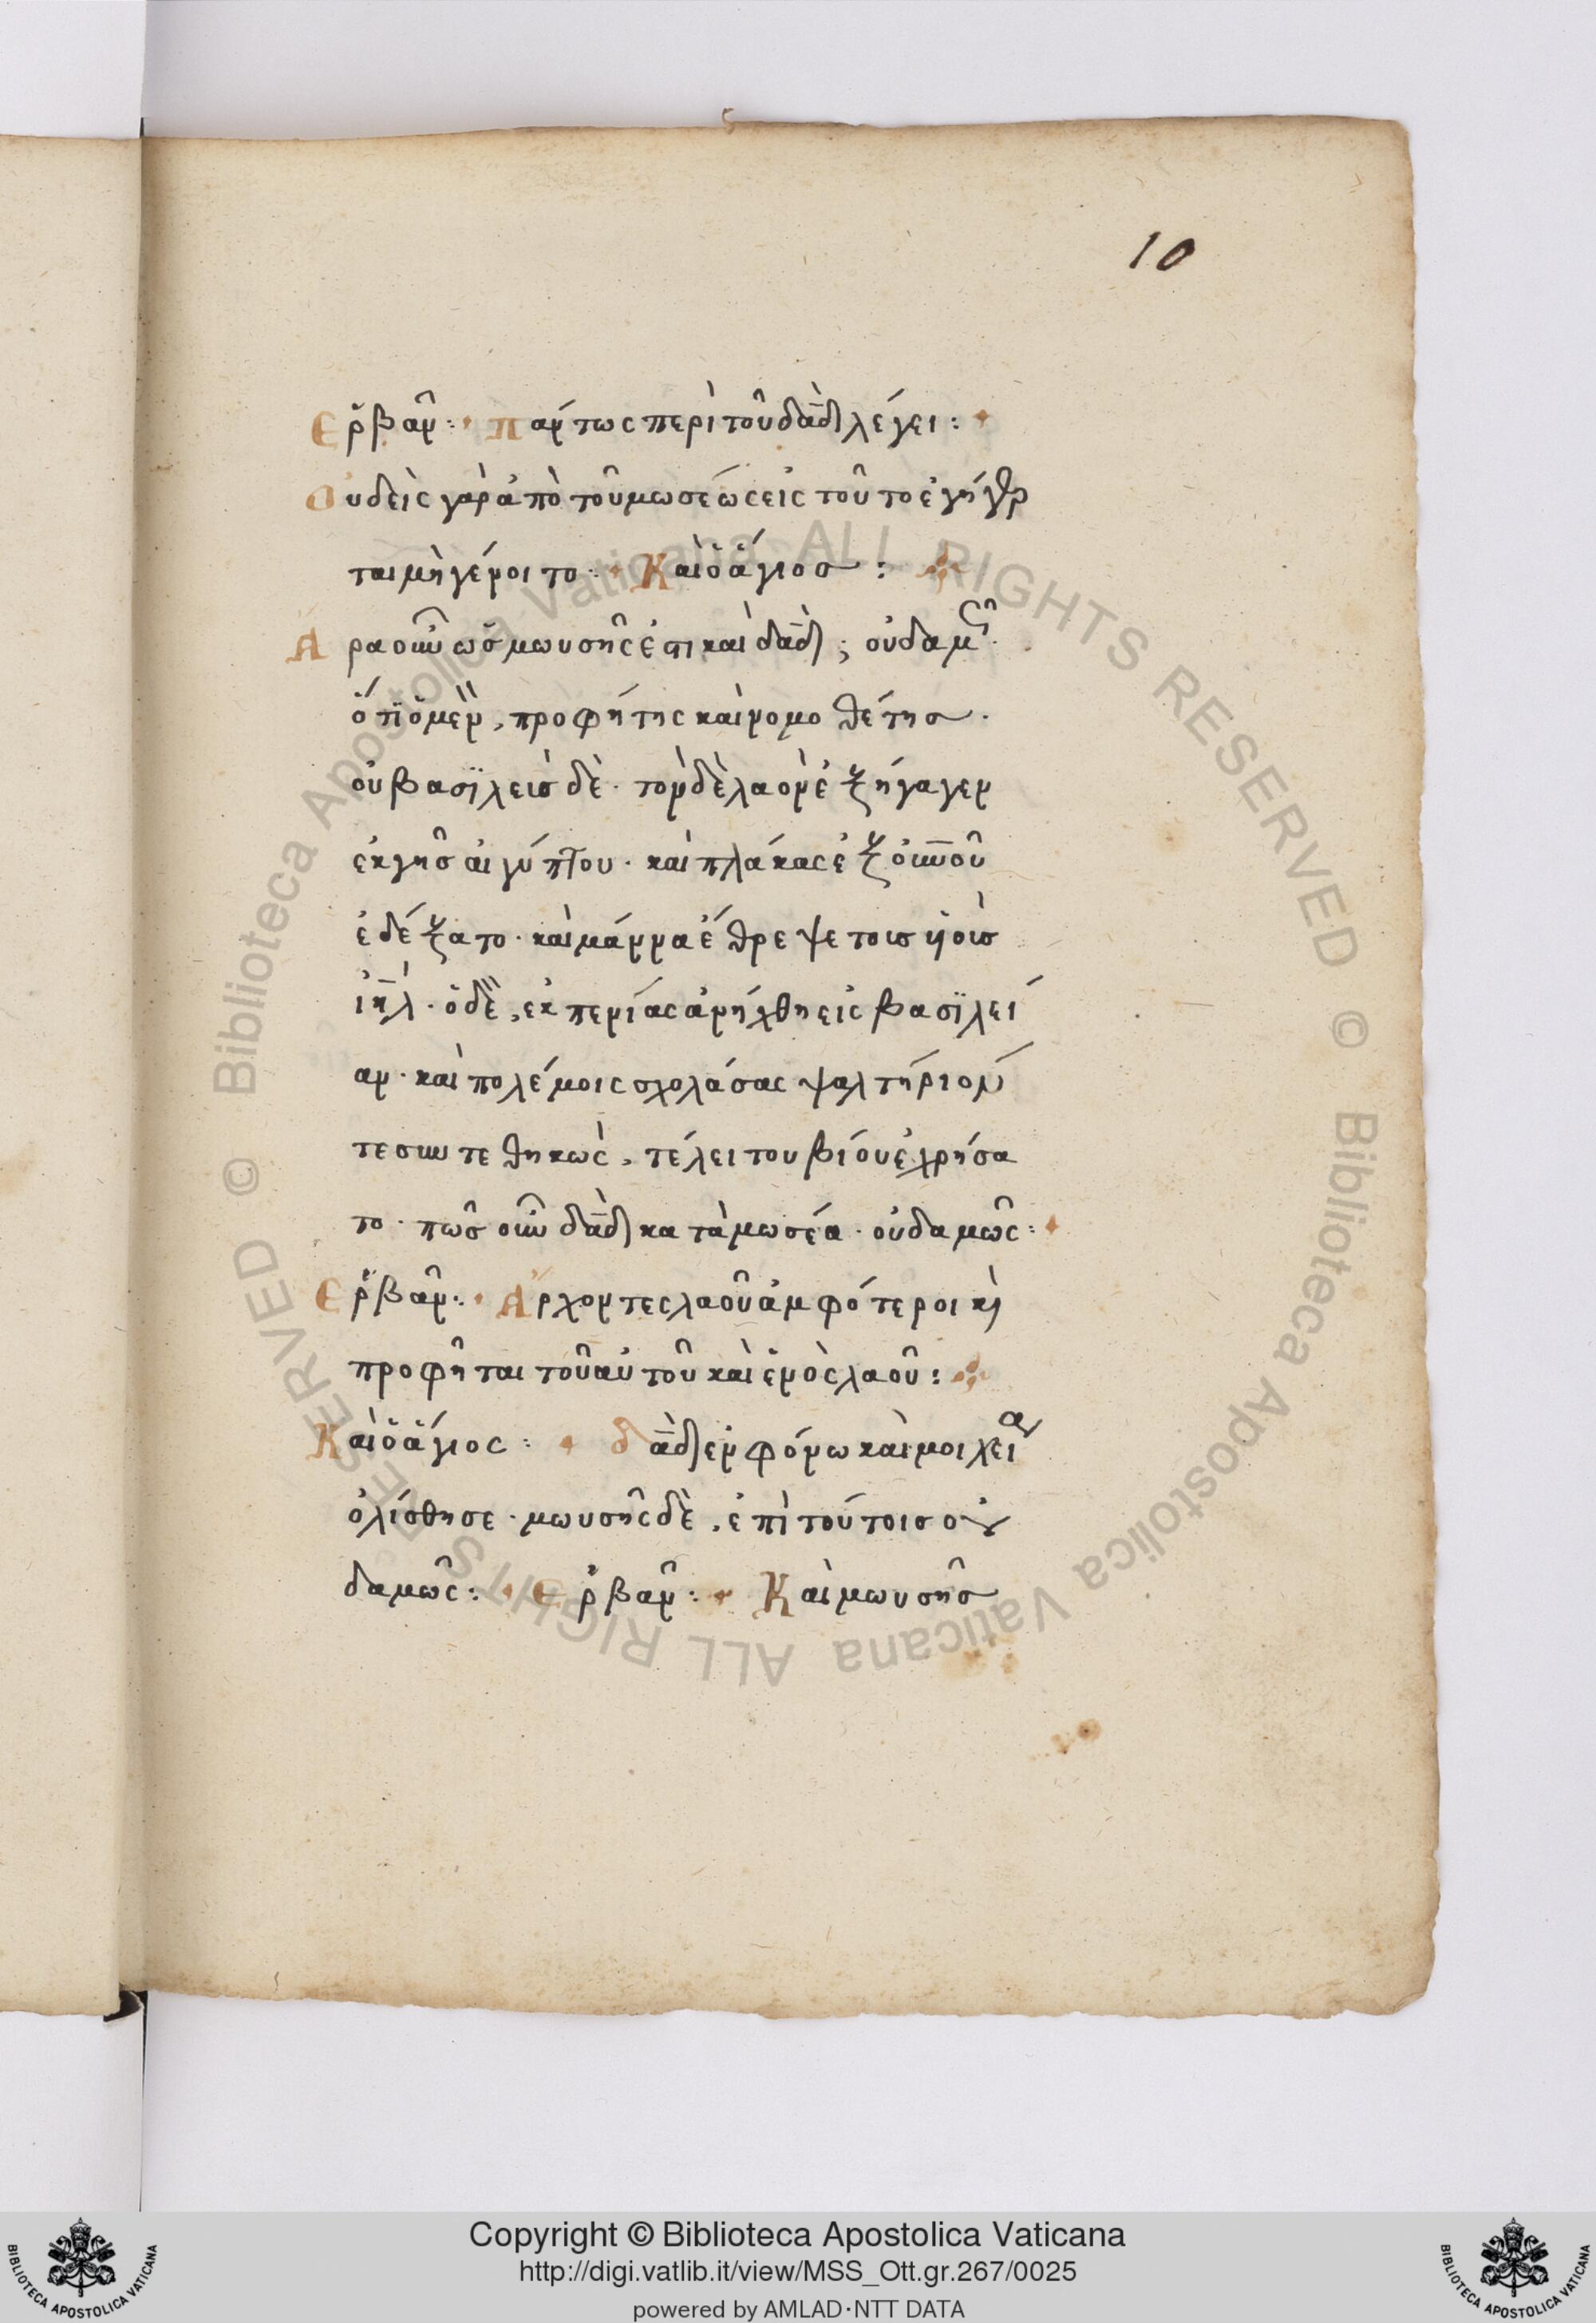 10
Ερβαν̂: πάντως περὶ τοῦ δᾱδ̀ λέγει:
Οὐδεὶς γὰρ ἀπὸ τοῦ μωσέως εἰς τοῦτο ἐγήγερ
ται μὴ γένοιτο: Καὶ ὁ ἅγιος:
Αρα οὖν ὡς μωυσῆς ἐστι καὶ δᾱδ; οὐδαμῶς.
ὅτι ὁ μὲν, προφήτης καὶ νομοθέτης.
οὐ βασϊλεὺς δὲ. τὸν δὲ λαὸν ἐξήγαγεν
ἐκ γῆς αἰγύπτου. καὶ πλάκας ἐξ οὐνοῦ
ἐδέξατο. καὶ μάννα ἔθρεψε τοὺς ὑιοὺς
ἰη̄λ. ὁ δὲ, ἐκ πενίας ἀνήχθη εἰς βασϊλεί
αν. καὶ πολέμοις σχολάσας ψαλτήριόν
τε συντεθηκὼς, τέλει του βίου ἐχρήσα
το. πῶς οὖν δᾱδ κατὰ μωσέα. οὐδαμῶς:
Ερβαν̂: Ἄρχοντες λαοῦ ἀμφότεροι κὶ
προφῆται τοῦ αὐτοῦ καὶ ἑνὸς λαοῦ:
Καὶ ὁ ἅγιος: δᾱδ ἐν φόνω καὶ μοιχεία
ὀλίσθησε. μωυσῆς δὲ, ἐπὶ τούτοις οὐ
δαμῶς: Ερβαν̂: Καὶ μωυσῆς
Copyright © Biblioteca Apostolica Vaticana
http://digi.vatlib.it/view/MSS_Ott.gr.267/0025
powered by AMLAD·NTT DATA
BIBLIOTECA APOSTOLICA VATICANA
BIBLIOTECA APOSTOLICA VATICANA
© Biblioteca Apostolica Vaticana ALL RIGHTS RESERVED © Biblioteca Apostolica Vaticana ALL RIGHTS RESERVED